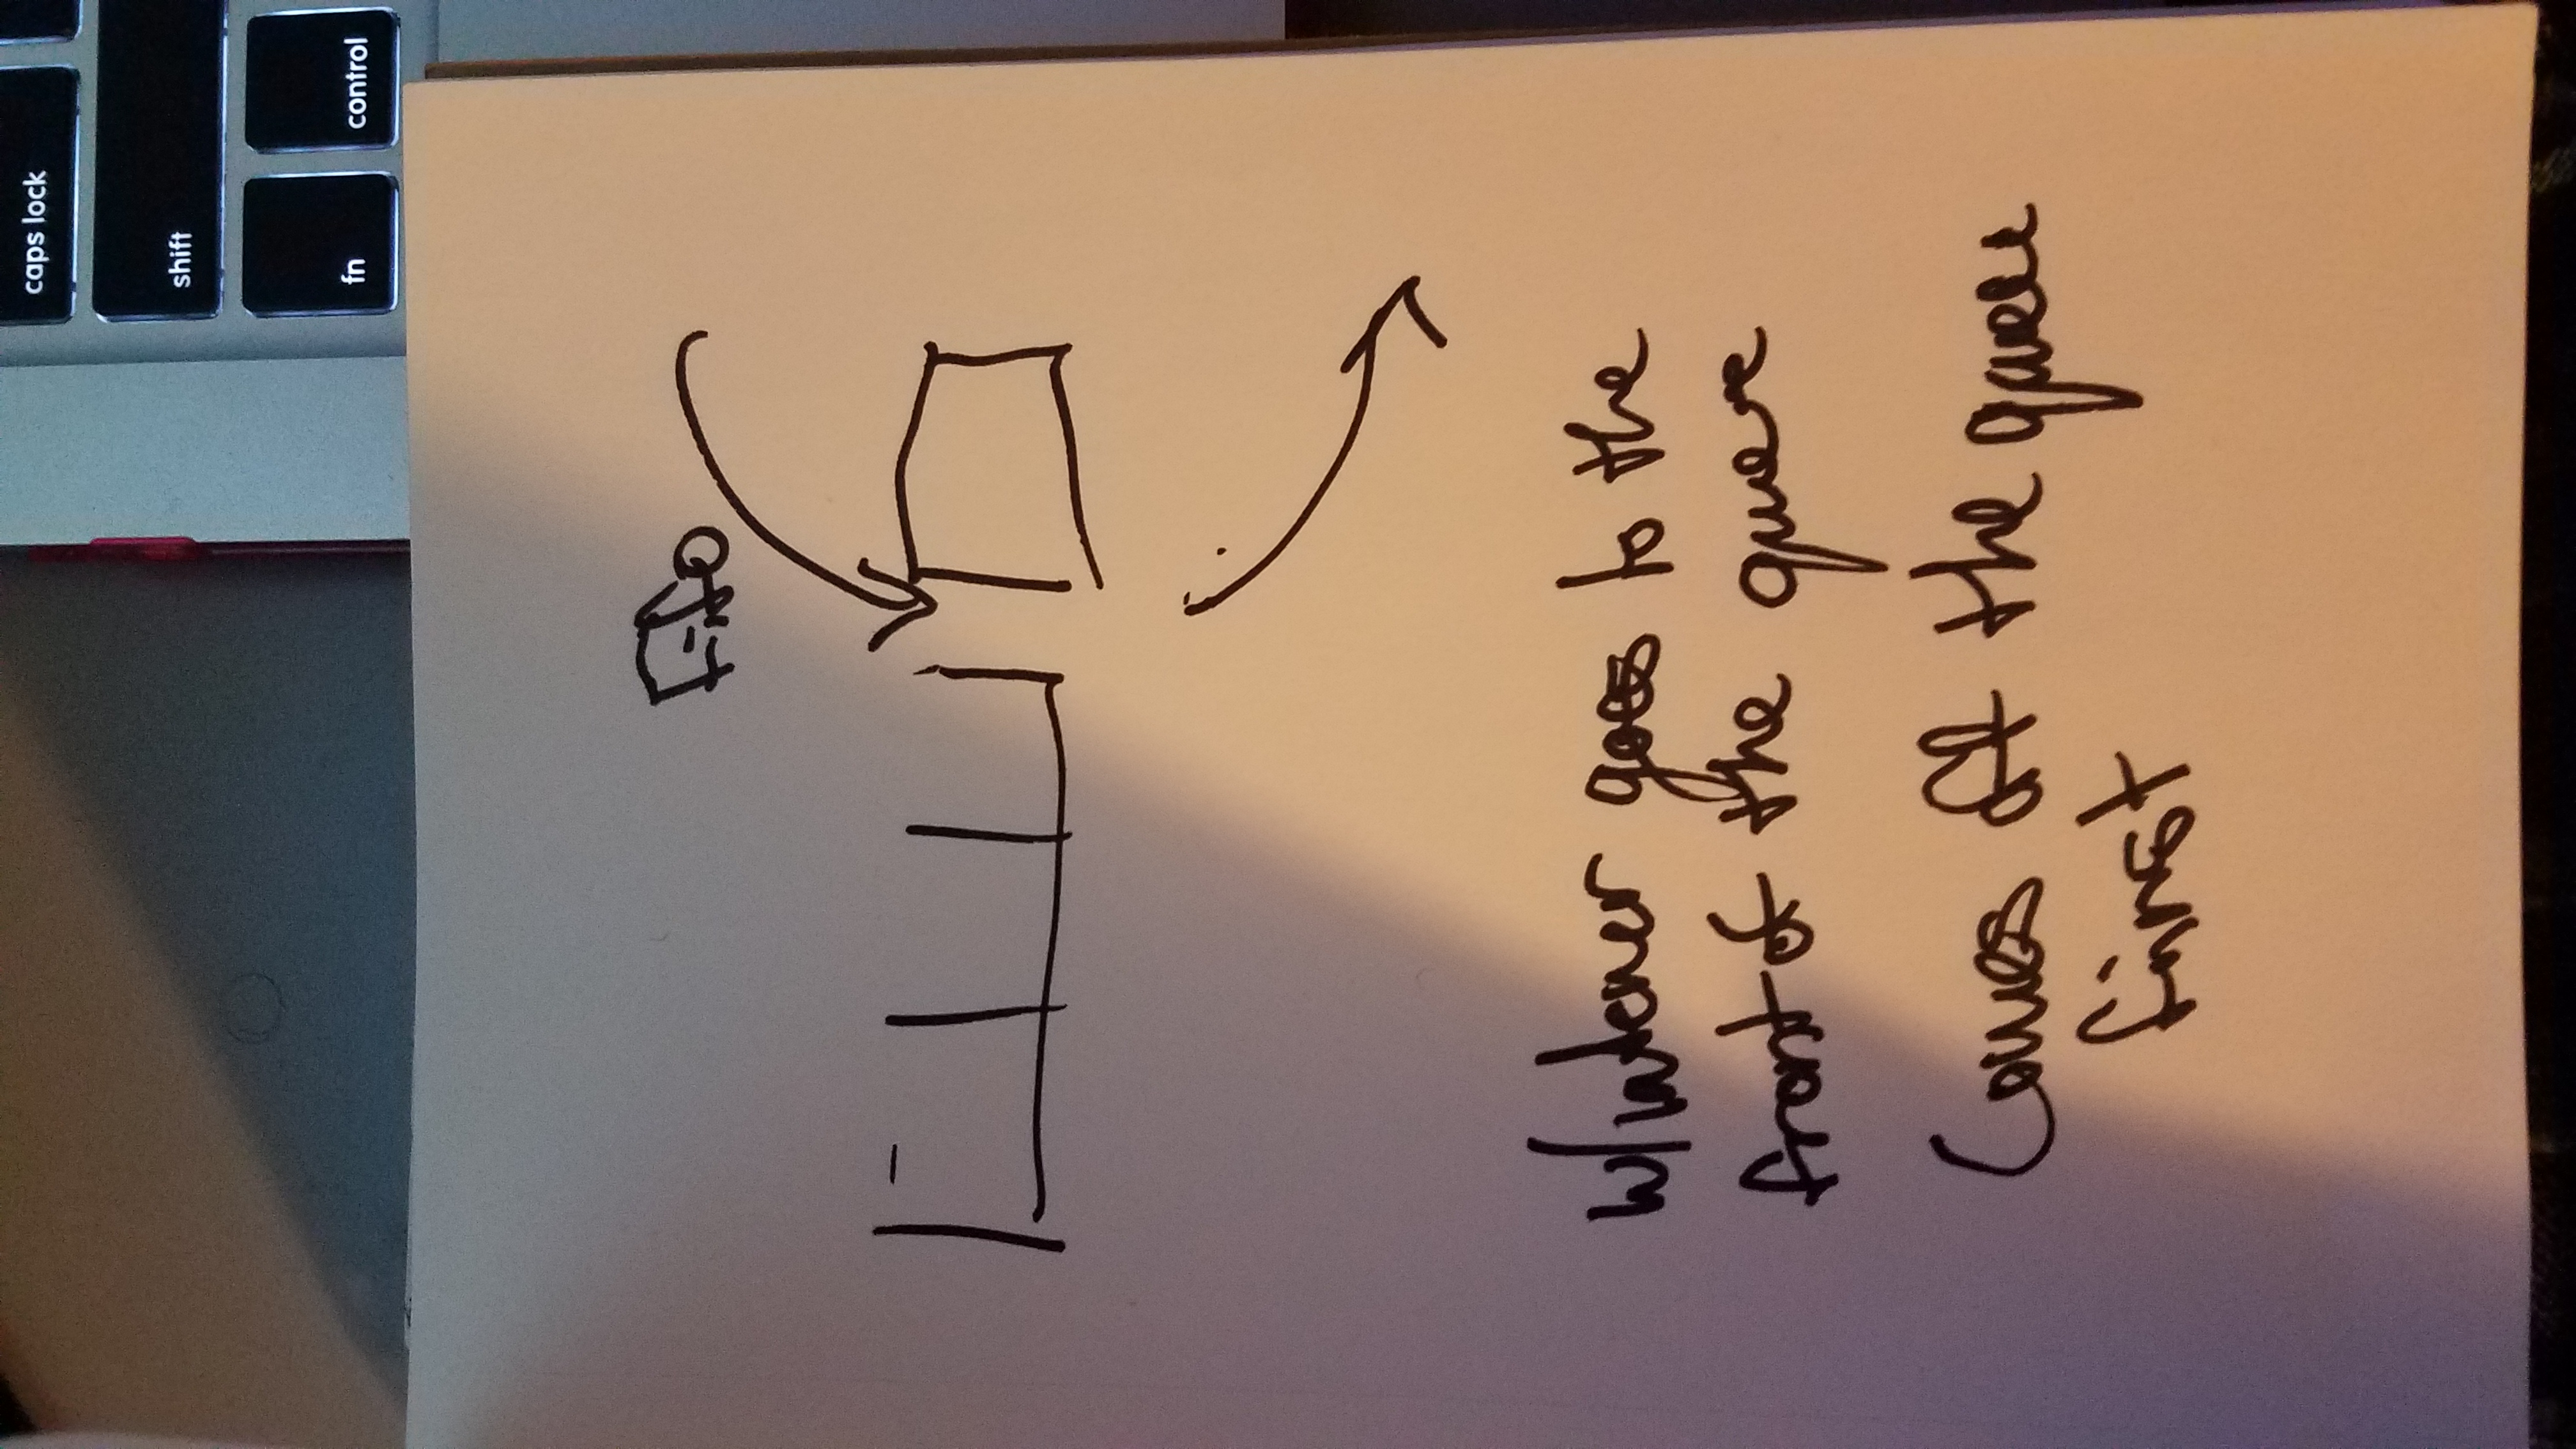 caps lock
shift
fn control
Fifo
Whatever goes to the
front of the queue
Comes off the queue
first